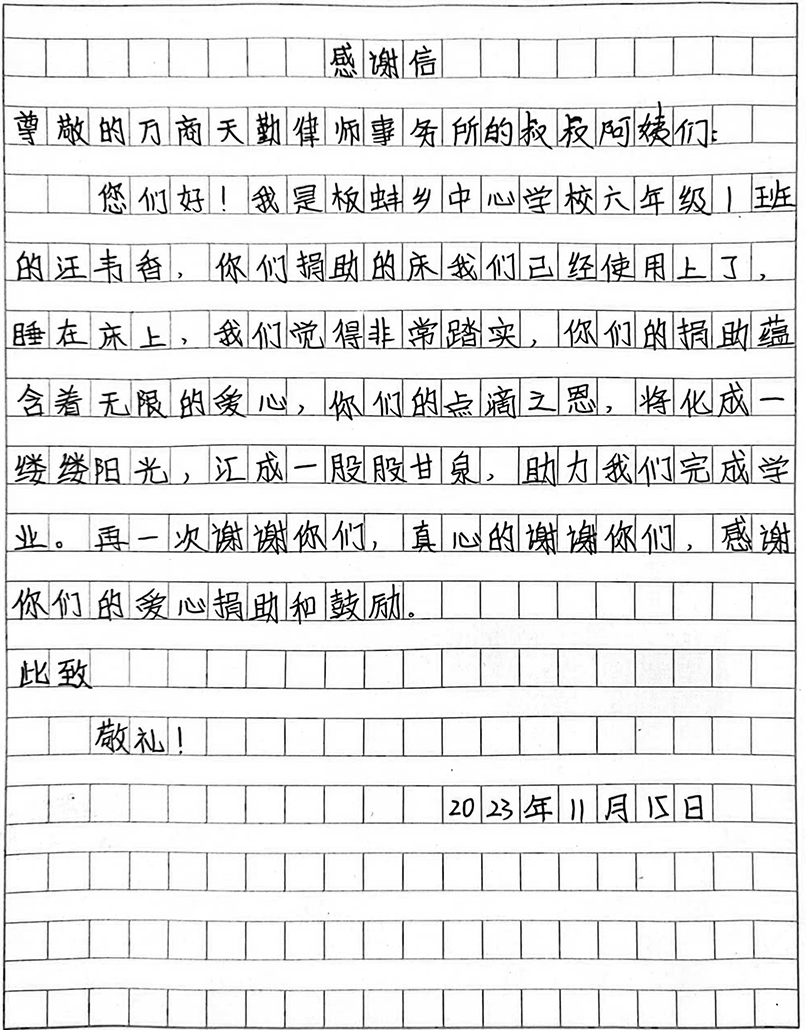 感谢信
尊敬的万商天勤律师事务所的叔叔阿姨们:
您们好!我是板蚌乡中心学校六年级1班
的汪韦香,你们捐助的床我们已经使用上了,
睡在床上,我们觉得非常踏实,你们的捐助蕴
含着无限的爱心,你们的点滴之恩,将化成一
缕缕阳光,汇成一股股甘泉,助力我们完成学
业。再一次谢谢你们,真心的谢谢你们,感谢
你们的爱心捐助和鼓励。
此致
敬礼!
2023年11月15日